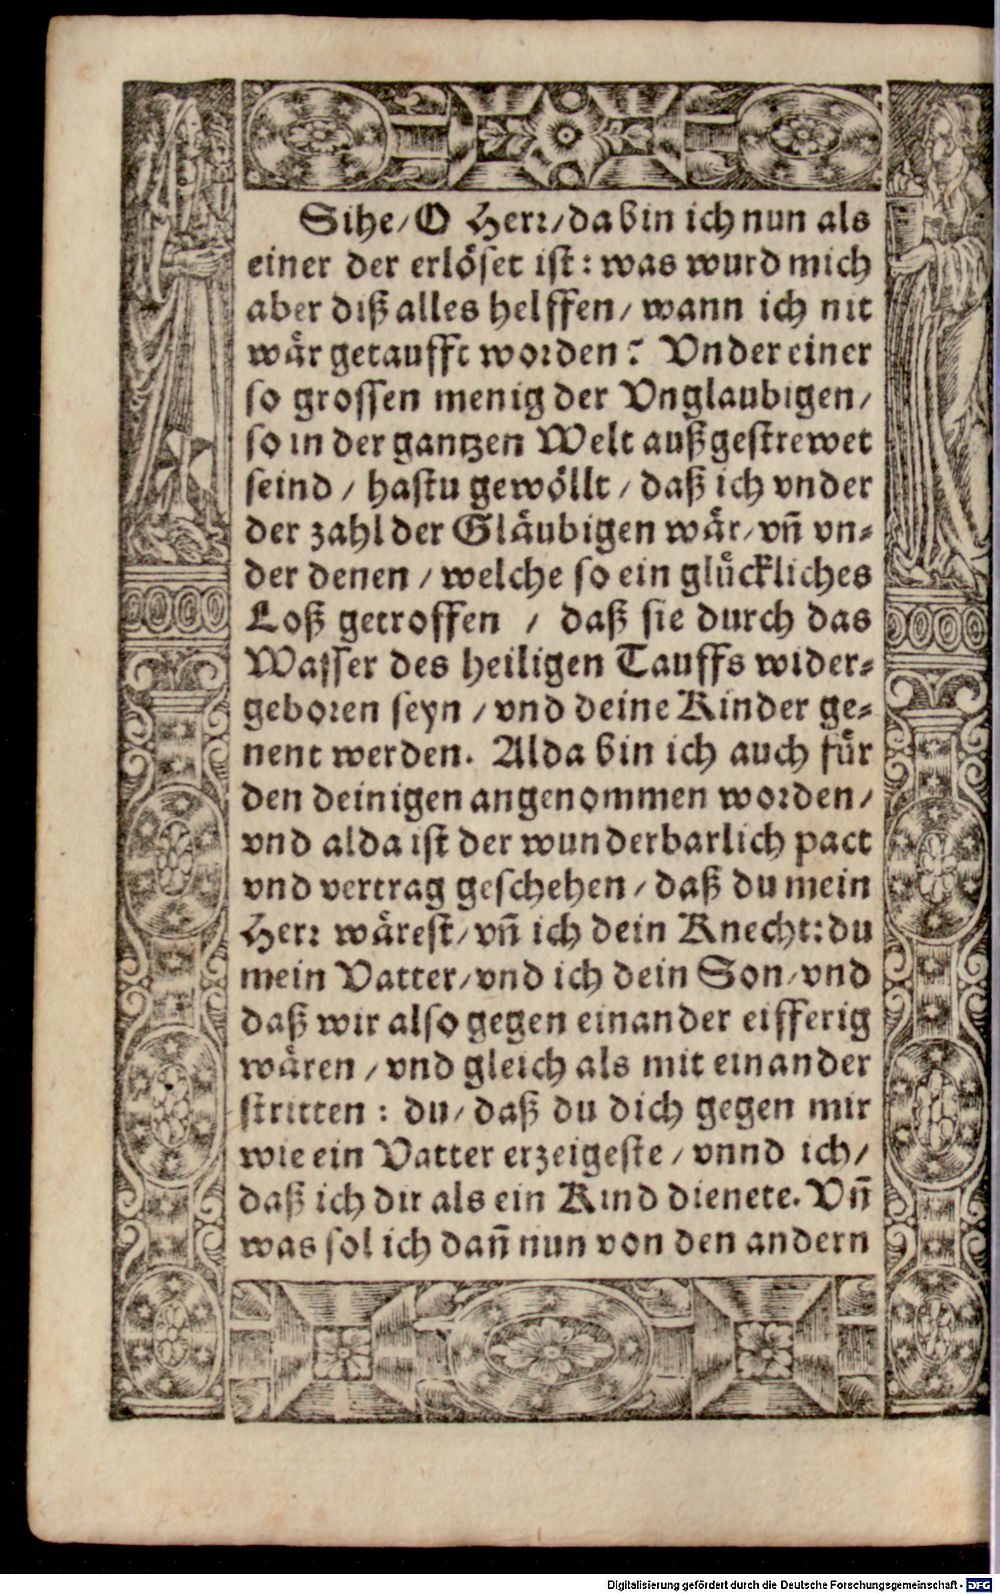 Sihe/ O Herr/ da bin ich nun als
einer der erlöset ist: was wurd mich
aber diß alles helffen/ wann ich nit
wär getaufft worden? Vnder einer
so grossen menig der Vnglaubigen/
so in der gantzen Welt außgestrewet
seind / hastu gewöllt / daß ich vnder
der zahl der Gläubigen wär/ vñ vn-
der denen / welche so ein glückliches
Loß getroffen / daß sie durch das
Wasser des heiligen Tauffs wider-
geboren seyn / vnd deine Kinder ge-
nent werden. Alda bin ich auch für
den deinigen angenommen worden/
vnd alda ist der wunderbarlich pact
vnd vertrag geschehen / daß du mein
Herr wärest/ vñ ich dein Knecht: du
mein Vatter/ vnd ich dein Son/ vnd
daß wir also gegen einander eifferig
wären / vnd gleich als mit einander
stritten : du/ daß du dich gegen mir
wie ein Vatter erzeigeste / vnnd ich/
daß ich dir als ein Kind dienete. Vñ
was sol ich dañ nun von den andern
Digitalisierung gefördert durch die Deutsche Forschungsgemeinschaft - DFG